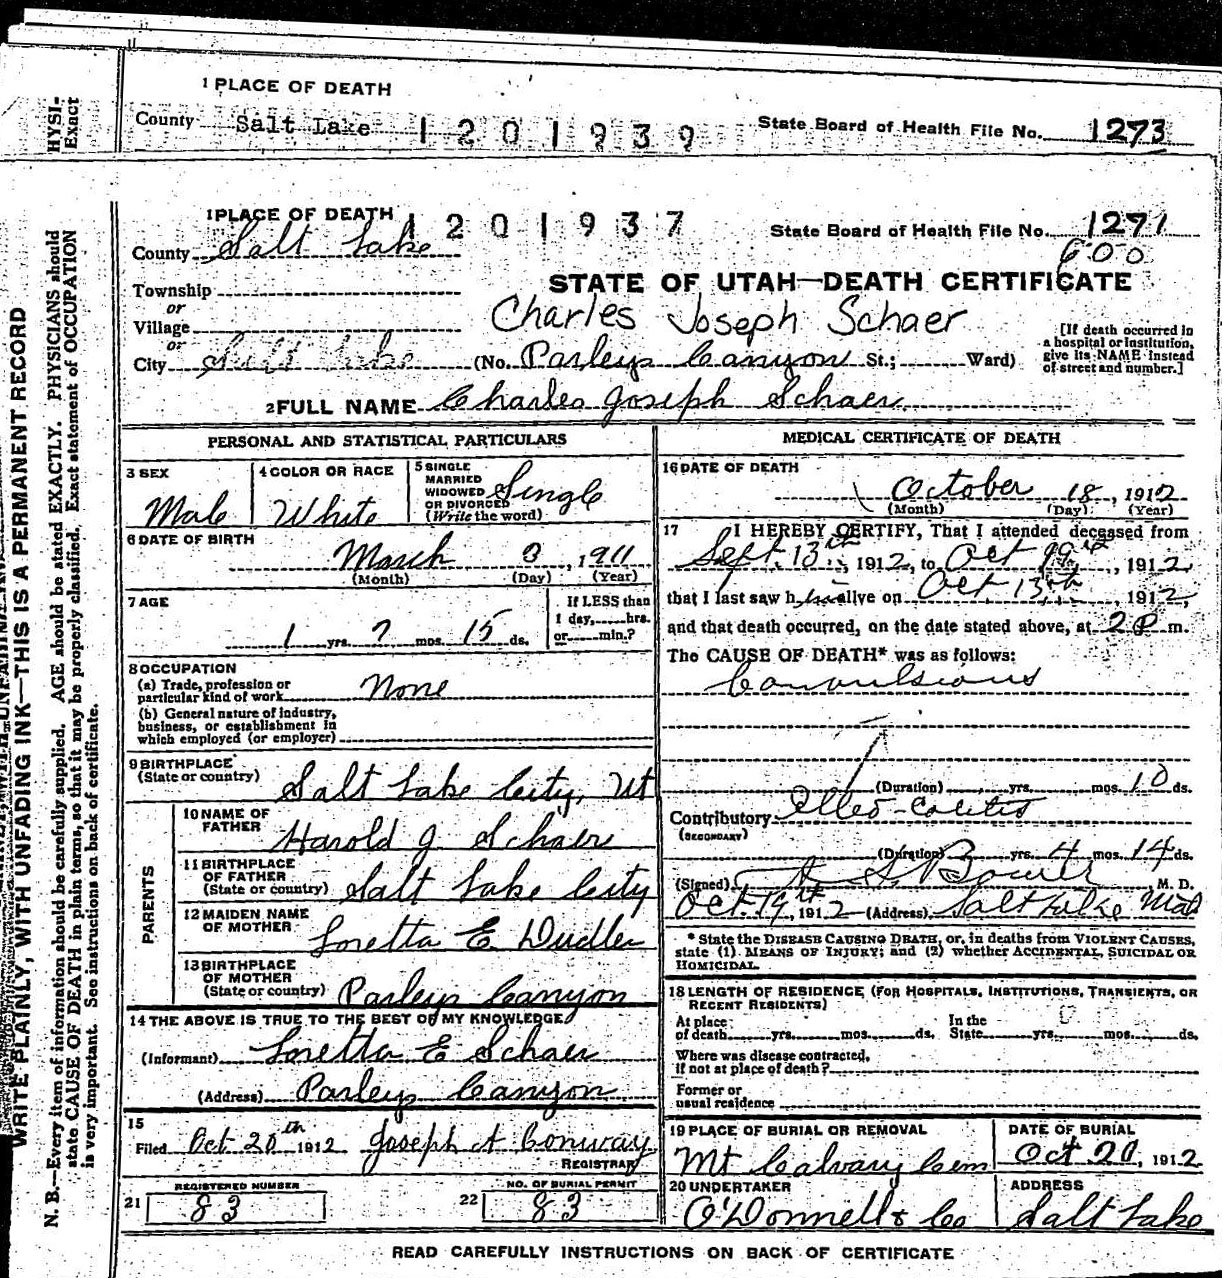 HYSI-
Exact
1 PLACE OF DEATH
County Salt Lake 1201939 State Board of Health File No. 1273
WRITE PLAINLY, WITH UNFADING INK—THIS IS A PERMANENT RECORD
N. B.—Every item of information should be carefully supplied. AGE should be stated EXACTLY. PHYSICIANS should
state CAUSE OF DEATH in plain terms, so that it may be properly classified. Exact statement of OCCUPATION
is very important. See instructions on back of certificate.
1 PLACE OF DEATH 1201937 State Board of Health File No. 1271
County Salt Lake 600
STATE OF UTAH—DEATH CERTIFICATE
Township
or
Village Charles Joseph Schaer
or
City Salt Lake (No. Parleys Canyon St.; Ward)
[If death occurred in
a hospital or institution,
give its NAME instead
of street and number.]
2 FULL NAME Charles Joseph Schaer
PERSONAL AND STATISTICAL PARTICULARS
3 SEX
Male
4 COLOR OR RACE
White
5 SINGLE
MARRIED
WIDOWED
OR DIVORCED
(Write the word)
Single
6 DATE OF BIRTH
March 3, 1911
(Month) (Day) (Year)
7 AGE
1 yrs. 7 mos. 15 ds.
If LESS than
1 day, hrs.
or min.?
8 OCCUPATION
(a) Trade, profession or
particular kind of work None
(b) General nature of industry,
business, or establishment in
which employed (or employer)
9 BIRTHPLACE
(State or country) Salt Lake City, Ut
PARENTS
10 NAME OF
FATHER Harold J. Schaer
11 BIRTHPLACE
OF FATHER
(State or country) Salt Lake City
12 MAIDEN NAME
OF MOTHER Loretta E Dudler
13 BIRTHPLACE
OF MOTHER
(State or country) Parleys Canyon
14 THE ABOVE IS TRUE TO THE BEST OF MY KNOWLEDGE
(Informant) Loretta E Schaer
(Address) Parleys Canyon
15
Filed Oct 20th 1912 Joseph A Conway
REGISTRAR
REGISTERED NUMBER
21 83
NO. OF BURIAL PERMIT
22 83
MEDICAL CERTIFICATE OF DEATH
16 DATE OF DEATH
October 18, 1912
(Month) (Day) (Year)
17 I HEREBY CERTIFY, That I attended deceased from
Sept. 13th, 1912, to Oct 19th, 1912,
that I last saw him alive on Oct 13th, 1912,
and that death occurred, on the date stated above, at 2 P m.
The CAUSE OF DEATH* was as follows:
Convulsions
(Duration) yrs. mos. 10 ds.
Contributory Illeo-Colitis
(SECONDARY)
(Duration) yrs. 4 mos. 14 ds.
(Signed) Bower M. D.
Oct. 19th, 1912 (Address) Salt Lake
* State the DISEASE CAUSING DEATH, or, in deaths from VIOLENT CAUSES,
state (1) MEANS OF INJURY; and (2) whether ACCIDENTAL, SUICIDAL OR
HOMICIDAL.
18 LENGTH OF RESIDENCE (FOR HOSPITALS, INSTITUTIONS, TRANSIENTS, OR
RECENT RESIDENTS)
At place
of death yrs. mos. ds.
In the
State yrs. mos. ds.
Where was disease contracted,
if not at place of death?
Former or
usual residence
19 PLACE OF BURIAL OR REMOVAL
Mt Calvary Cem
DATE OF BURIAL
Oct 20, 1912
20 UNDERTAKER
O'Donnell & Co
ADDRESS
Salt Lake
READ CAREFULLY INSTRUCTIONS ON BACK OF CERTIFICATE